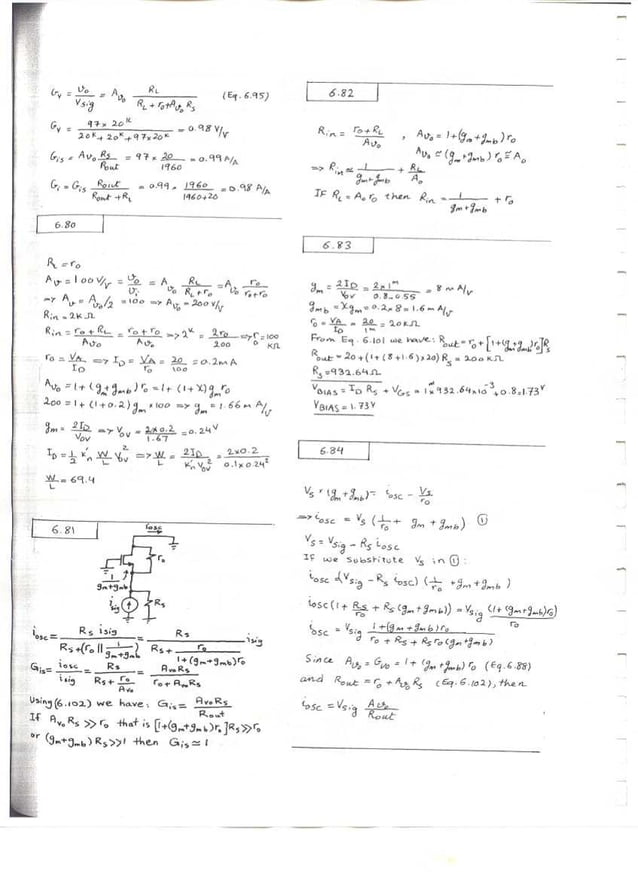 Gv = vo/vsig = Avo RL/(RL + ro + Avo Rs) (Eq. 6.95)
Gv = 97 × 20K/(20K + 20K + 97 × 20K) = 0.98 V/V
Gis = Avo Rs/Rout = 97 × 20/1960 = 0.99 A/A
Gi = Gis Rout/(Rout + RL) = 0.99 · 1960/(1960+20) = 0.98 A/A
6.80
RL = ro
Av = 100 V/V = vo/vi = Avo RL/(RL + ro) = Avo ro/(ro + ro)
=> Av = Avo/2 = 100 => Avo = 200 V/V
Rin = 2KΩ
Rin = (ro + RL)/Avo = (ro + ro)/Avo => 2K = 2ro/200 => ro = 100 KΩ
ro = VA/ID => ID = VA/ro = 20/100 = 0.2mA
Avo = 1 + (gm + gmb) ro = 1 + (1 + χ) gm ro
200 = 1 + (1 + 0.2) gm × 100 => gm = 1.66 m A/V
gm = 2ID/VOV => VOV = 2×0.2/1.67 = 0.24V
ID = 1/2 K'n W/L VOV² => W/L = 2ID/(K'n VOV²) = 2×0.2/(0.1×0.24²)
W/L = 69.4
6.81
iosc
ro
1/(gm+gmb)
isig
Rs
iosc = Rs isig/(Rs + (ro || 1/(gm+gmb))) = Rs/(Rs + ro/(1 + (gm+gmb)ro)) isig
Gis = iosc/isig = Rs/(Rs + ro/Avo) = Avo Rs/(ro + Avo Rs)
Using (6.102) we have: Gis = Avo Rs/Rout
If Avo Rs >> ro that is [1 + (gm + gmb) ro] Rs >> ro
or (gm + gmb) Rs >> 1 then Gis ≃ 1
6.82
Rin = (ro + RL)/Avo , Avo = 1 + (gm + gmb) ro
Avo ≃ (gm + gmb) ro ≅ Ao
=> Rin ≃ 1/(gm + gmb) + RL/Ao
IF RL = Ao ro then Rin = 1/(gm + gmb) + ro
6.83
gm = 2ID/VOV = 2×1m/(0.8 - 0.55) = 8 m A/V
gmb = χ gm = 0.2 × 8 = 1.6 m A/V
ro = VA/ID = 20/1m = 20KΩ
From Eq. 6.101 we have: Rout = ro + [1 + (gm + gmb) ro] Rs
Rout = 20 + (1 + (8 + 1.6) × 20) Rs = 200 KΩ
Rs = 932.64 Ω
VBIAS = ID Rs + VGS = 1m × 932.64 × 10⁻³ + 0.8 = 1.73V
VBIAS = 1.73V
6.84
Vs × (gm + gmb) = iosc - Vs/ro
=> iosc = Vs (1/ro + gm + gmb) ①
Vs = Vsig - Rs iosc
If we substitute Vs in ①:
iosc = (Vsig - Rs iosc) (1/ro + gm + gmb)
iosc (1 + Rs/ro + Rs (gm + gmb)) = Vsig (1 + (gm + gmb) ro)/ro
iosc = Vsig (1 + (gm + gmb) ro)/(ro + Rs + Rs ro (gm + gmb))
Since Avo = Gvo = 1 + (gm + gmb) ro (Eq. 6.88)
and Rout = ro + Avo Rs (Eq. 6.102), then
iosc = Vsig Avo/Rout